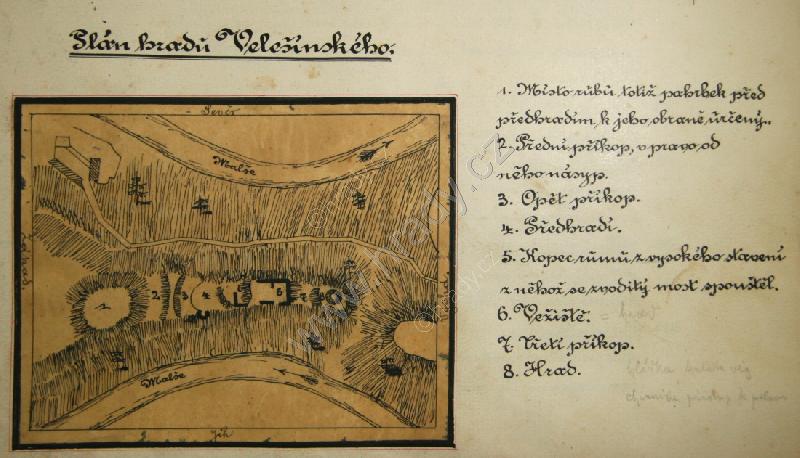 Plán hradu Velešínského.
Sever
Malše
1
2
3
4
5
6
Malše
Jih
1. Místo rubů, totiž pahrbek před
předhradím, k jeho obraně určený.
2. Přední příkop, v pravo, od
něho násyp.
3. Opět příkop.
4. Předhradí.
5. Kopec rumu z vysokého stavení
z něhož se zvoditý most spouštěl.
6. Věžiště.
7. Třetí příkop.
8. Hrad.
www.hrady.cz
©hrady.cz